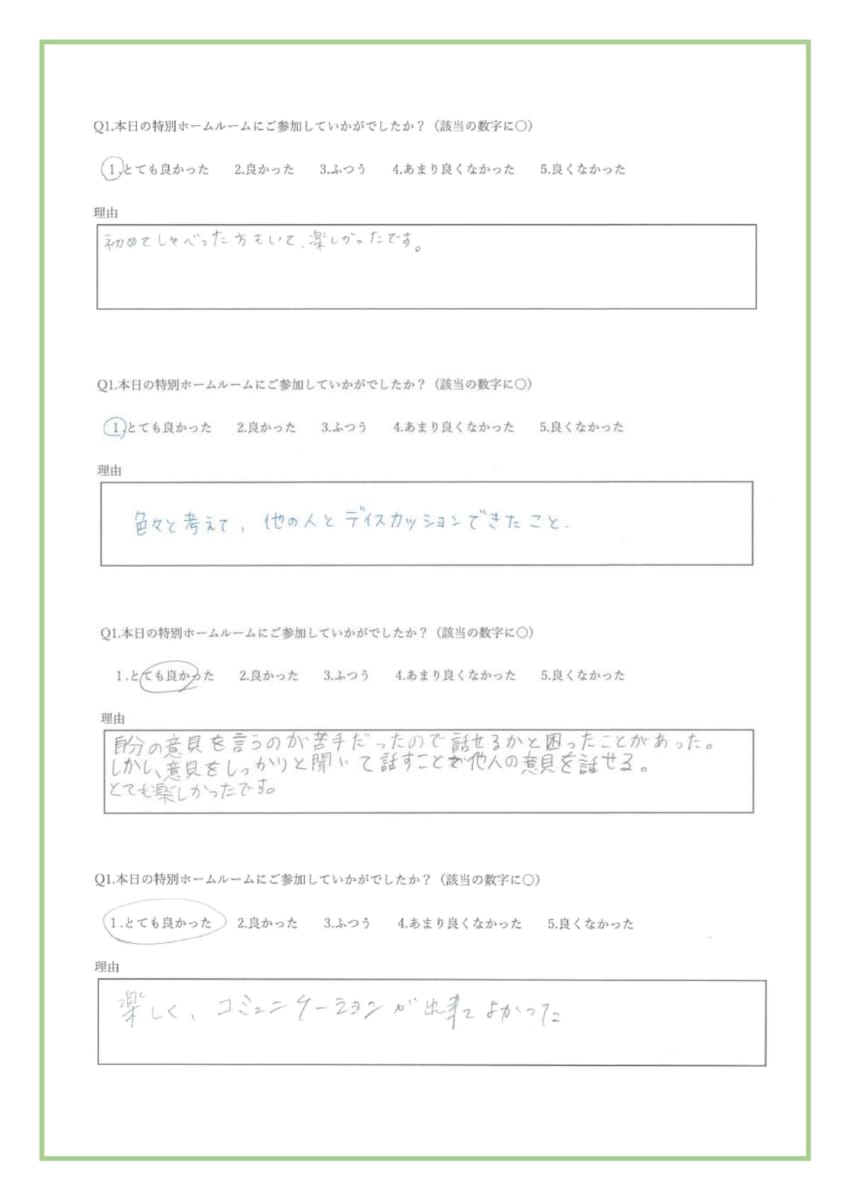 Q1.本日の特別ホームルームにご参加していかがでしたか？（該当の数字に○）
1.とても良かった 2.良かった 3.ふつう 4.あまり良くなかった 5.良くなかった
理由
初めてしゃべった方もいて、楽しかったです。
Q1.本日の特別ホームルームにご参加していかがでしたか？（該当の数字に○）
1.とても良かった 2.良かった 3.ふつう 4.あまり良くなかった 5.良くなかった
理由
色々と考えて、他の人とディスカッションできたこと.
Q1.本日の特別ホームルームにご参加していかがでしたか？（該当の数字に○）
1.とても良かった 2.良かった 3.ふつう 4.あまり良くなかった 5.良くなかった
理由
自分の意見を言うのが苦手だったので話せるかと困ったことがあった。
しかし、意見をしっかりと聞いて話すことで他人の意見を話せる。
とても楽しかったです。
Q1.本日の特別ホームルームにご参加していかがでしたか？（該当の数字に○）
1.とても良かった 2.良かった 3.ふつう 4.あまり良くなかった 5.良くなかった
理由
楽しく、コミュニケーションが出来てよかった